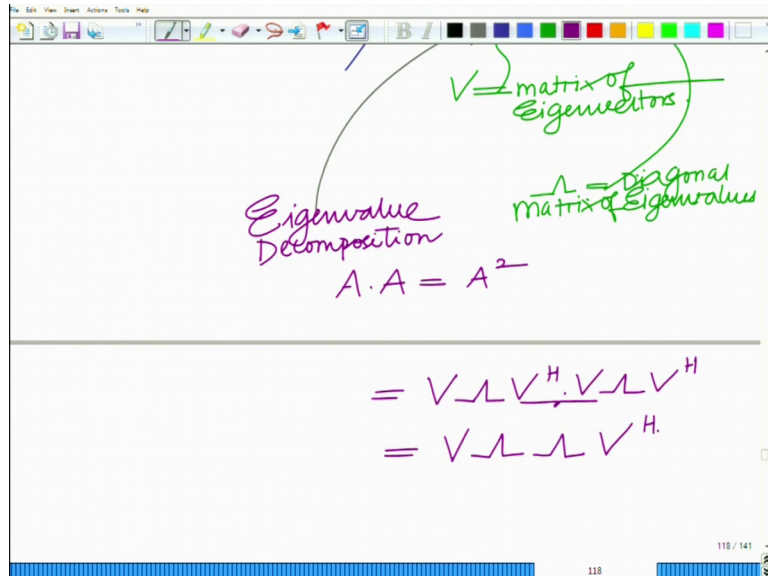 File Edit View Insert Actions Tools Help
B I
V = matrix of
Eigenvectors.
Λ = Diagonal
matrix of Eigenvalues
Eigenvalue
Decomposition
A . A = A²
= V Λ Vᴴ . V Λ Vᴴ
= V Λ Λ Vᴴ.
118 / 141
118